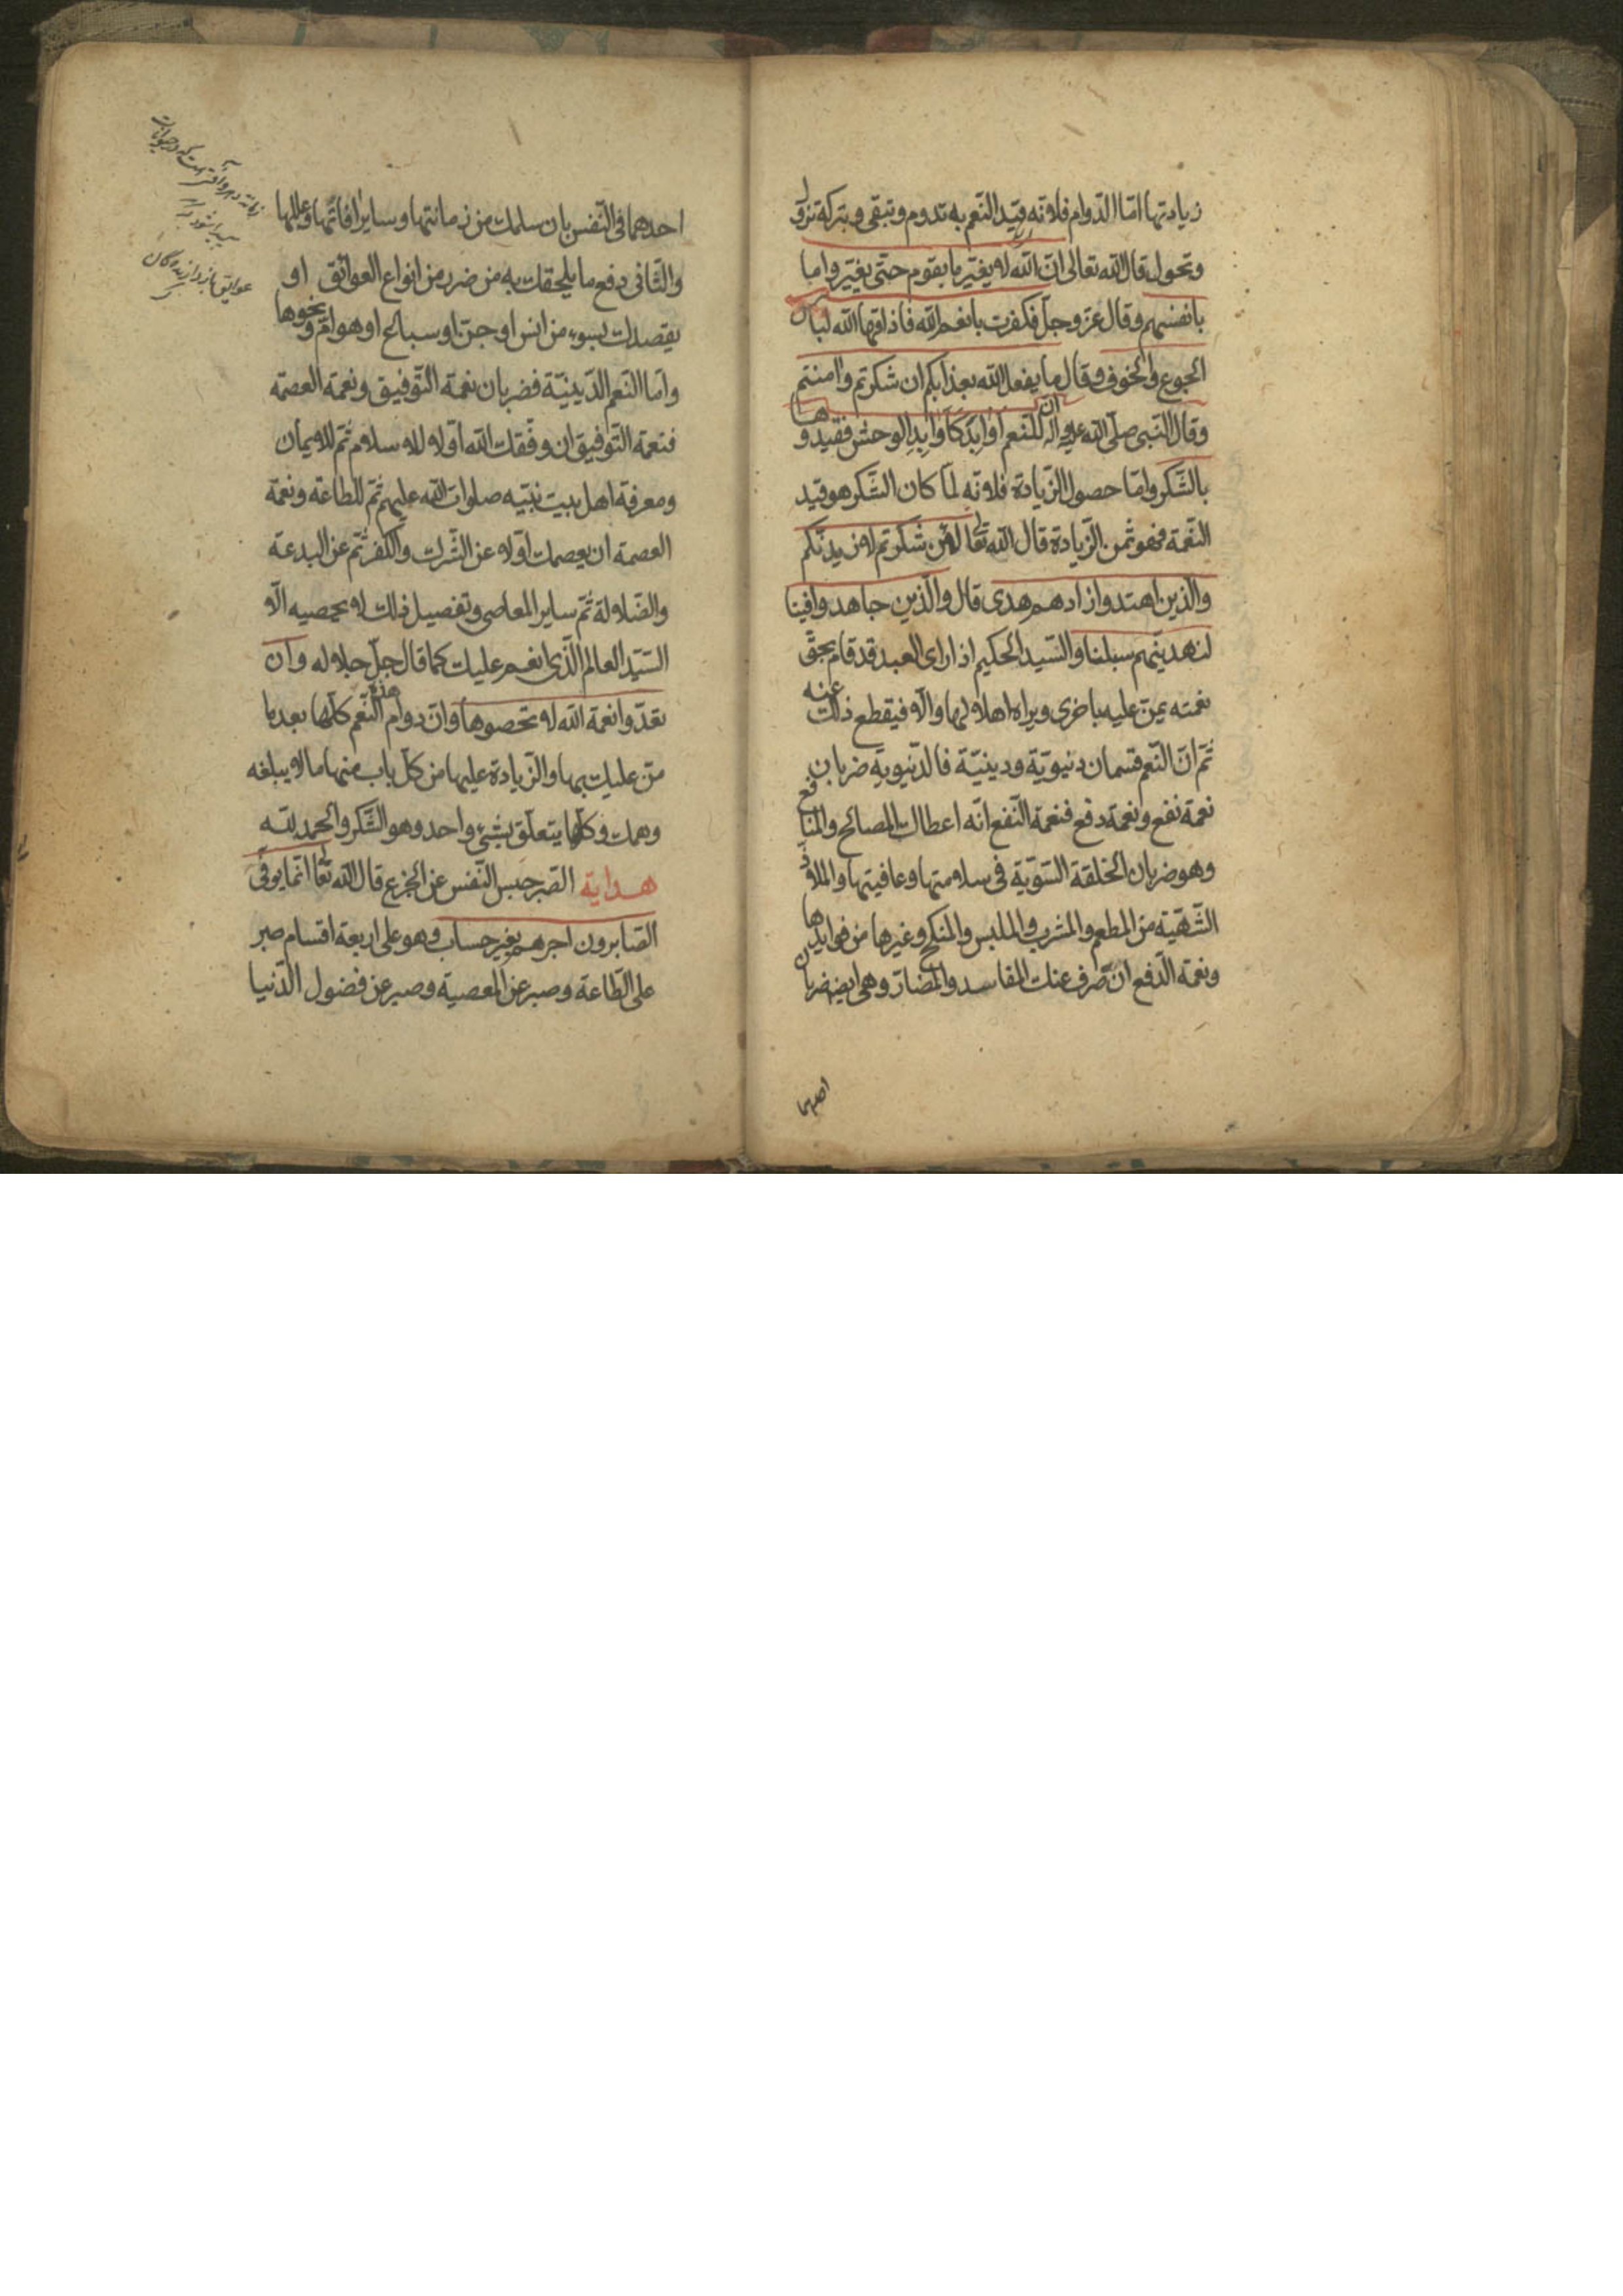 زيادتها امّا الدّوام فلانّه قيد النّعم به تدوم وتبقى وبتركه تزول
وتحول قال الله تعالى انّ الله لا يغيّر ما بقوم حتّى يغيّروا ما
بانفسهم وقال عزّ وجلّ فكفرت بانعم الله فاذاقها الله لباس
الجوع والخوف وقال ما يفعل الله بعذابكم ان شكرتم وامنتم
وقال النّبى صلّى الله عليه وآله انّ للنّعم اوابد كاوابد الوحش فقيدوها
بالشّكر وامّا حصول الزّيادة فلانّه لمّا كان الشّكر هو قيد
النّعمة فهو ثمن الزّيادة قال الله تعا لئن شكرتم لازيدنّكم
والّذين اهتدوا زادهم هدى قال والّذين جاهدوا فينا
لنهدينّهم سبلنا والسّيد الحكيم اذا راى العبد قد قام بحقّ
نعمته يمنّ عليه باخرى ويراه اهلا لها والّا فيقطع ذلك عنه
ثمّ انّ النّعم قسمان دنيويّة ودينيّة فالدّنيويه ضربان
نعمة نفع ونعمة دفع فنعمة النّفع انّه اعطاك المصالح والمنافع
وهو ضربان الخلقة السّويّة فى سلامتها وعافيتها والملاذ
الشّهيّة من المطعم والمشرب والملبس والمنكح وغيرها من فوايدها
ونعمة الدّفع ان صرف عنك المفاسد والمضارّ وهى ايض ضربان
احدهما
احدهما فى النّفس بان سلمك من زمانتها وساير افاتها وعللها
والثّانى دفع ما يلحقك به من ضرر من انواع العوائق او
يقصدك بسوء من انس او جنّ او سباع او هوامّ ونحوها
وامّا النّعم الدّينيّة فضربان نعمة التّوفيق ونعمة العصمة
فنعمة التّوفيق ان وفّقك الله اوّلا للاسلام ثمّ للايمان
ومعرفة اهل بيت نبيّه صلوات الله عليهم ثمّ للطاعة ونعمة
العصمة ان يعصمك اوّلا عن الشّرك والكفر ثمّ عن البدعة
والضّلالة ثمّ ساير المعاصى وتفصيل ذلك لا يحصيه الّا
السّيّد العالم الّذى انعم عليك كما قال جلّ جلاله وان
تعدّوا نعمة الله لا تحصوها وانّ دوام هذه النّعم كلّها بعد ما
منّ عليك بها والزّيادة عليها من كلّ باب منها ما لا يبلغه
وهمك وكلّها يتعلّق بشىء واحد وهو الشّكر والحمد لله
هداية الصّبر حبس النّفس عن الجزع قال الله تعا انّما يوفّى
الصّابرون اجرهم بغير حساب وهو على اربعة اقسام صبر
على الطّاعة وصبر عن المعصية وصبر عن فضول الدّنيا